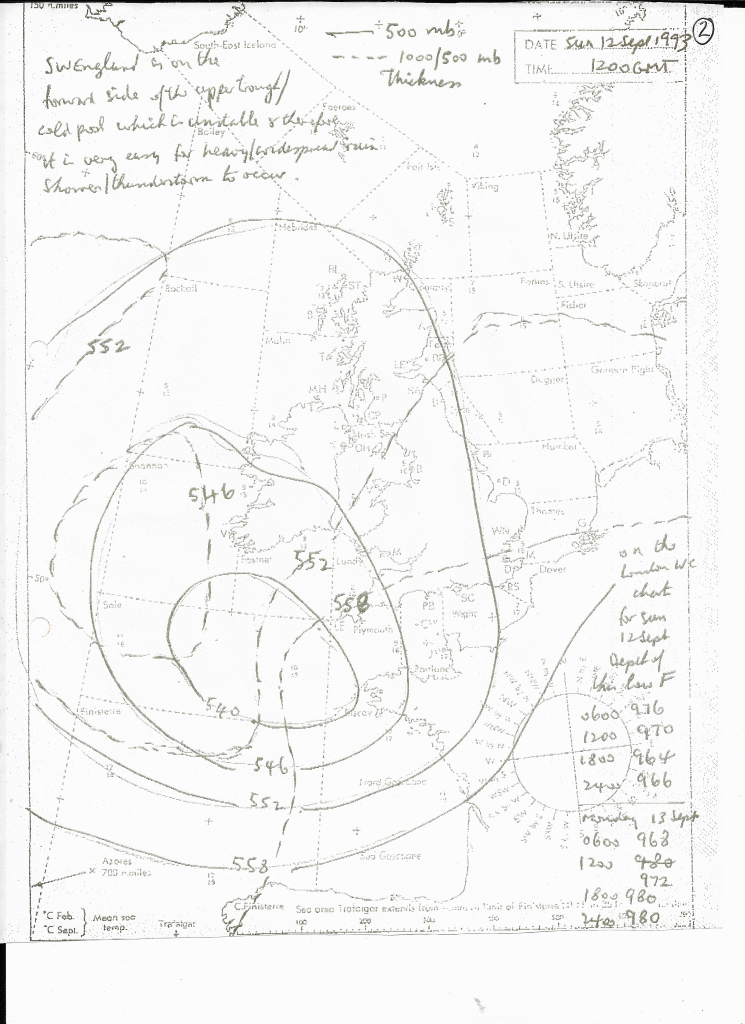 150 n.miles
South-East Iceland
10°
500 mb
1000/500 mb
Thickness
DATE Sun 12 Sept 1993
TIME 1200 GMT
2
SW England is on the
forward side of the upper trough/
cold pool which is unstable & therefore
it is very easy for heavy/widespread rain
shower/thunderstorm to occur.
Faeroes
Bailey
Fair Isle
Viking
N. Utsire
Hebrides
Rockall
Forties
S. Utsire
Skagerrak
Fisher
552
Malin
Dogger
German Bight
Humber
Shannon
546
Thames
Fastnet
552
Lundy
Dover
50°
Sole
558
Plymouth
Wight
Portland
on the
London WC
chart
for Sun
12 Sept
Depth of
this low F
0600 976
1200 970
1800 964
2400 966
Finisterre
540
Biscay
546
552
Nord Gascogne
Monday 13 Sept
0600 968
1200 980
972
1800 980
2400 980
Azores
700 n.miles
558
Sud Gascogne
C.Finisterre
Sea area Trafalgar extends from
°C Feb.
°C Sept.
Mean sea
temp.
Trafalgar
100
200
300
400